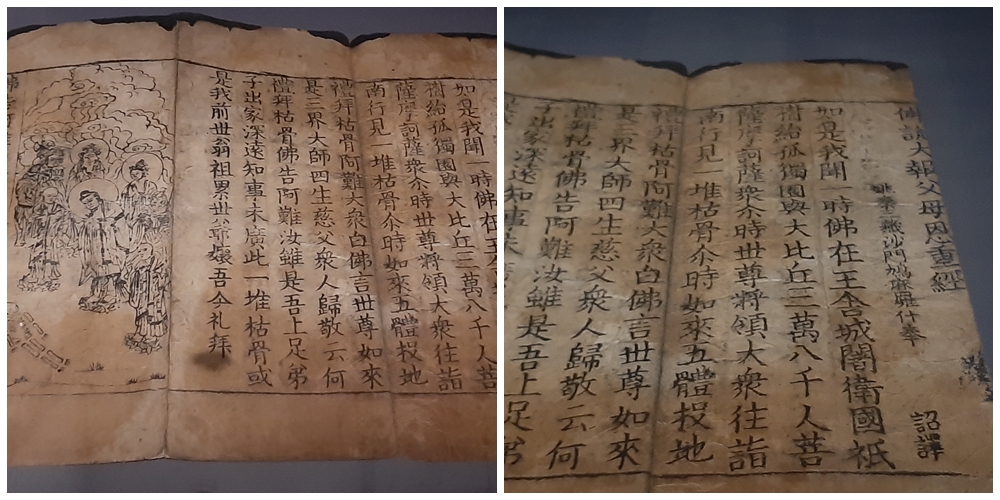 如是我聞一時佛在王
樹給孤獨園與大比丘三萬八千人菩
薩摩訶薩衆尒時世尊將領大衆往詣
南行見一堆枯骨尒時如來五體投地
禮拜枯骨阿難大衆白佛言世尊如來
是三界大師四生慈父衆人歸敬云何
禮拜枯骨佛告阿難汝雖是吾上足弟
子出家深遠知事未廣此一堆枯骨或
是我前世翁祖累世爺孃吾今礼拜
佛說大報父母恩重經
姚秦三藏沙門鳩摩羅什奉
詔譯
如是我聞一時佛在王舍城闍衛國祇
樹給孤獨園與大比丘三萬八千人菩
薩摩訶薩衆尒時世尊將領大衆往詣
南行見一堆枯骨尒時如來五體投地
禮拜枯骨阿難大衆白佛言世尊如來
是三界大師四生慈父衆人歸敬云何
禮拜枯骨佛告阿難汝雖是吾上足弟
子出家深遠知事未